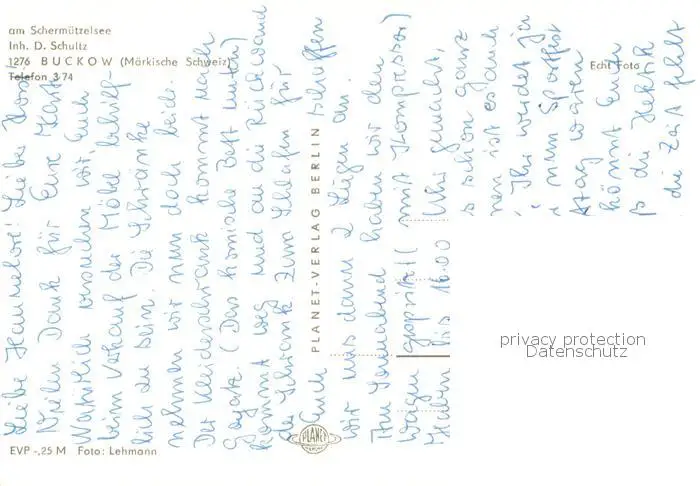 am Schermützelsee
Inh. D. Schultz
1276 BUCKOW (Märkische Schweiz)
Telefon 3 74
Echt Foto
Liebe Hannelore! Liebe
Vielen Dank für Eure Karte
Natürlich versuchen wir, Euch
beim Verkauf der Möbel behilf-
lich zu sein. Die Schränke
nehmen wir nun doch beide.
Der Kleiderschrank kommt nach
(Das komische Bett unten)
kommt weg und an die Rückwand
der Schrank zum Schlafen für
Euch schaffen
wir uns dann 2 Liegen an.
Am Sonnabend haben wir den
Wagen gespritzt (mit Kompressor)
Haben bis 16.00 Uhr gemacht,
s schon ganz
nen ist es auch
Ihr werdet ja
nun Sportfest
warten
könnt Euch
die Hektik
die Zeit fehlt
PLANET-VERLAG BERLIN
PLANET
EVP -,25 M Foto: Lehmann
privacy protection
Datenschutz